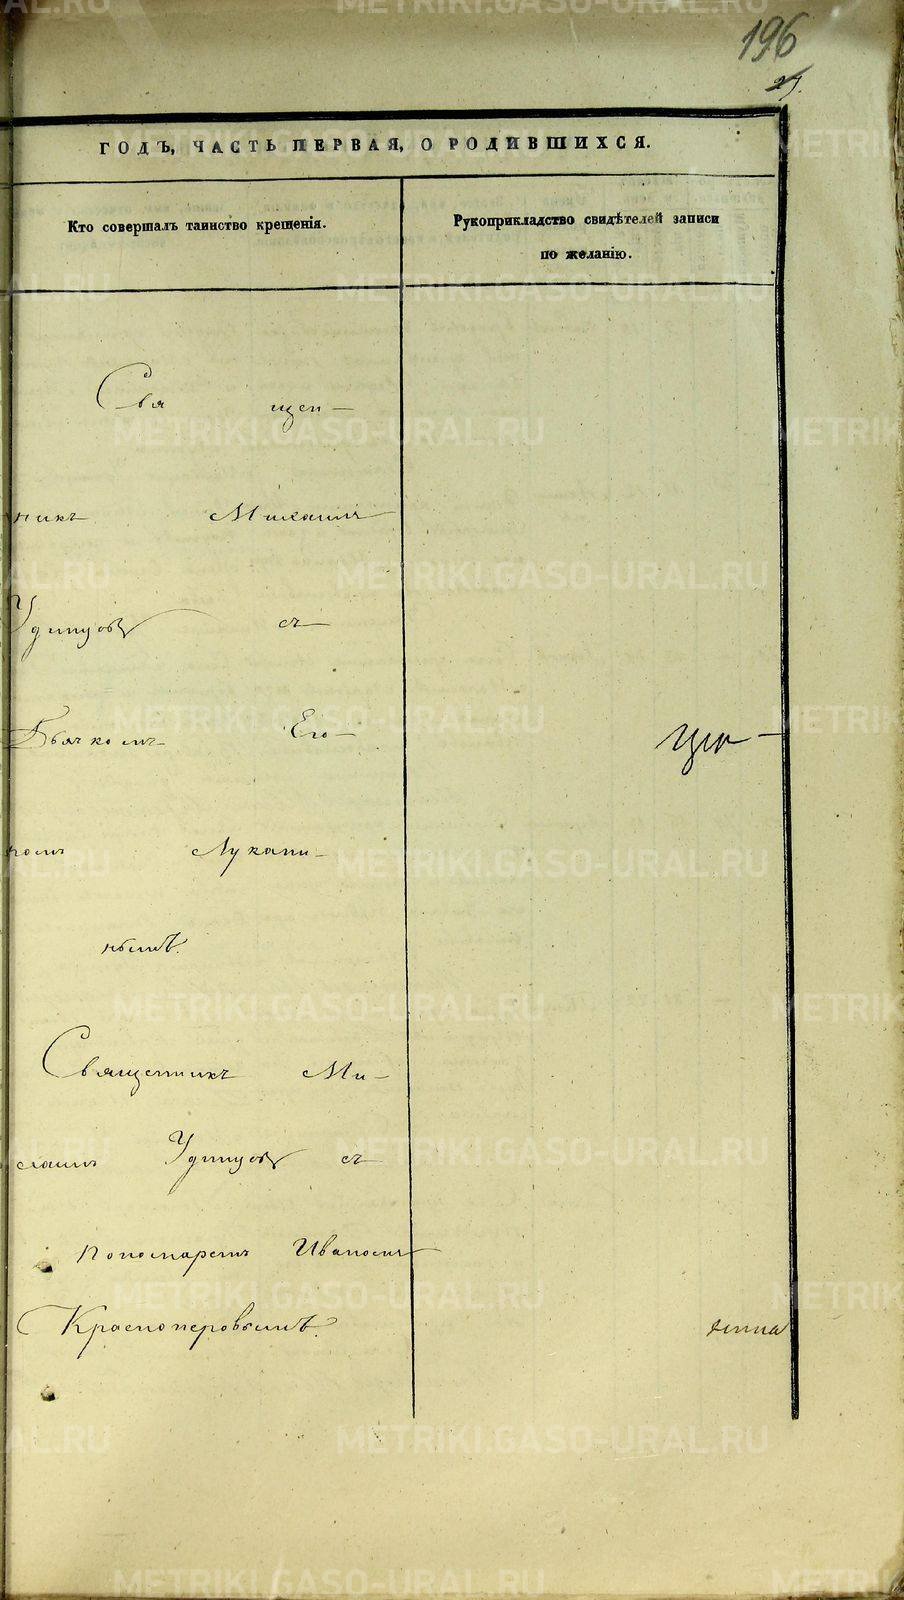 196
27.
ГОДЪ, ЧАСТЬ ПЕРВАЯ, О РОДИВШИХСЯ.
Кто совершалъ таинство крещенія.
Рукоприкладство свидѣтелей записи
по желанію.
Свя щен-
никъ Михаилъ
Удинцовъ съ
Дьячкомъ Его-
ромъ Лукани-
нымъ.
Священникъ Ми-
хаилъ Удинцовъ съ
пономаремъ Иваномъ
Красноперовымъ.
METRIKI.GASO-URAL.RU